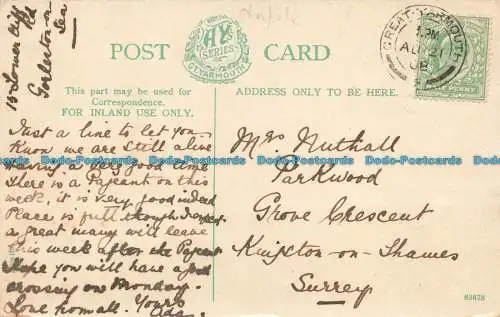 15 Lower Cliff
Rd
Gorleston-on
Sea
POST CARD
"AY"
SERIES
GT YARMOUTH
GREAT YARMOUTH
PM
AU 21
08
This part may be used for
Correspondence.
FOR INLAND USE ONLY.
ADDRESS ONLY TO BE HERE.
Just a line to let you
know we are still alive
having a very good time
There is a Pageant on this
week, it is very good indeed
Place is full though I expect
a great many will leave
this week after the Pageant
Hope you will have a good
crossing on Monday.
Love from all. Yours
Ada.
Mrs Nuthall
Parkwood
Grove Crescent
Kingston-on-Thames
Surrey
Judo-Postcards Judo-Postcards Judo-Postcards Judo-Postcards Judo-Postcards